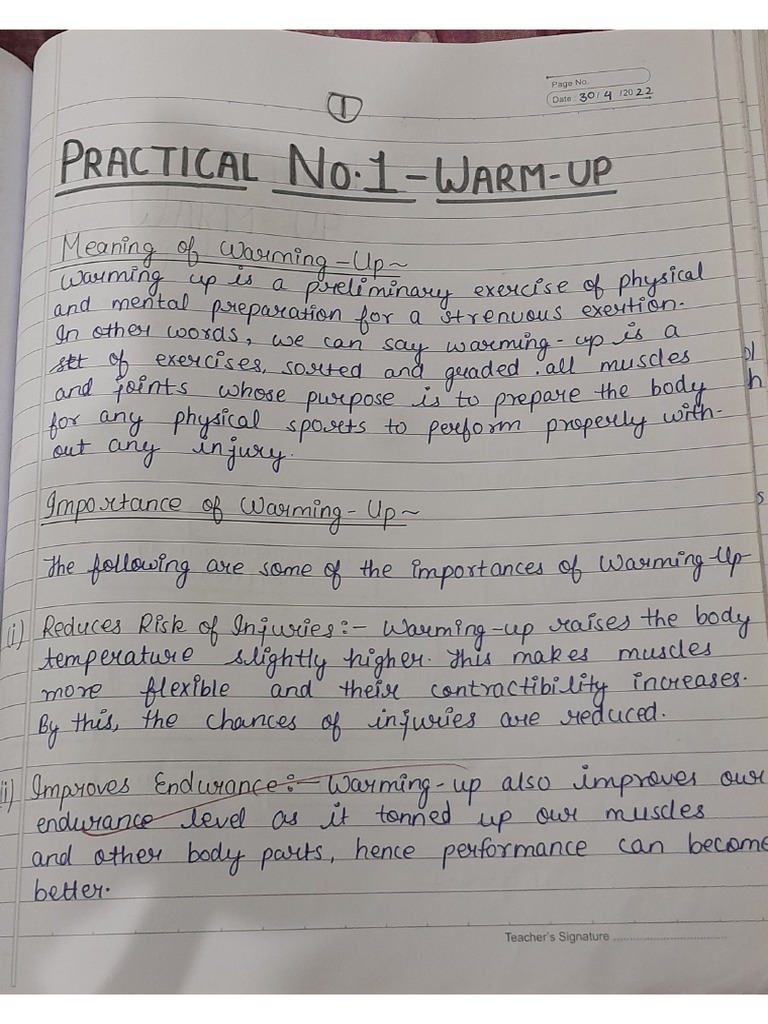 Page No.
Date 30/4/2022
1
PRACTICAL No.1-WARM-UP
Meaning of Warming-Up~
Warming up is a preliminary exercise of physical
and mental preparation for a strenuous exertion.
In other words, we can say warming-up is a
set of exercises, sorted and graded. all muscles
and joints whose purpose is to prepare the body
for any physical sports to perform properly with-
out any injury.
Importance of Warming-Up~
The following are some of the importances of Warming-Up
(i) Reduces Risk of Injuries:- Warming-up raises the body
temperature slightly higher. This makes muscles
more flexible and their contractibility increases.
By this, the chances of injuries are reduced.
ii) Improves Endurance:- Warming-up also improves our
endurance level as it tonned up our muscles
and other body parts, hence performance can become
better.
Teacher's Signature